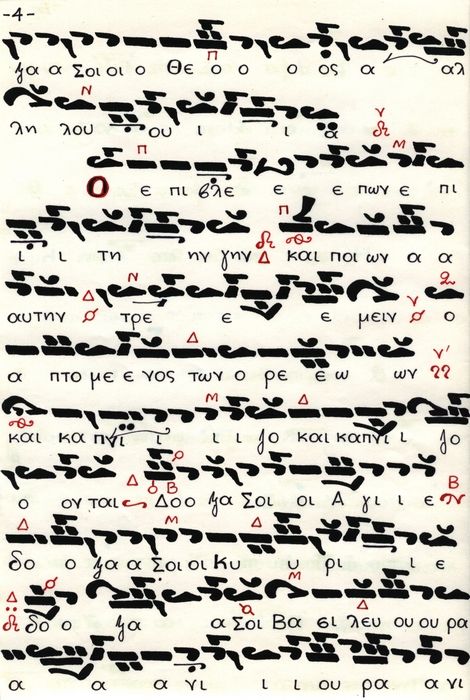 -4-
ξα α Σοι οι ο Θε ο ο ο ος α αλ
λη λου ου ι ι α
Ο ε πι βλε ε ε ε πων ε πι
ι ι τη ην γην και ποι ων α α
αυτην τρε ε ε ε μειν ο
α πτο με ε νος των ο ρε ε ω ων
και κα πνι ι ι ι ζο και καπνι ι ζο
ο ον ται Δοο ξα Σοι οι Α γι ι ε
δο ο ξα α Σοι οι Κυ υ υ ρι ι ε
δο ο ξα α Σοι Βα σι λευ ου ου ρα
α α α νι ι ι ου ρα α νι